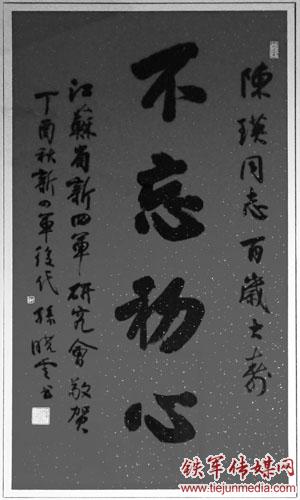 陳瑛同志百歲大壽
不忘初心
江蘇省新四軍研究會敬贺
丁酉秋新四軍後代孫晓雲书
铁军传媒网
www.tiejunmedia.com